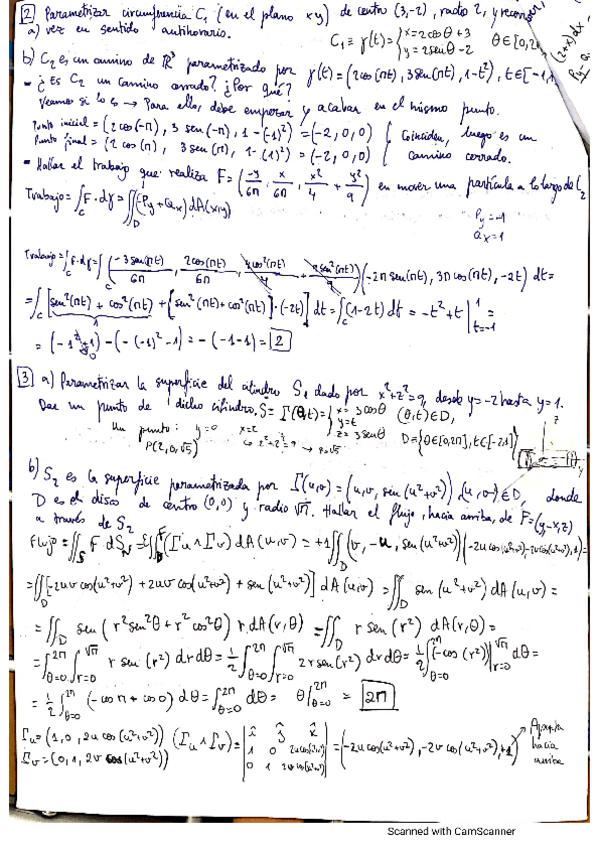 2 Parametrizar circunferencia C₁ (en el plano xy) de centro (3,-2), radio 2, y recorrer
a) vez en sentido antihorario. C₁ ≡ γ(t) = { x = 2cosθ + 3 θ∈[0,2π
y = 2senθ - 2
(2+x)dx
Py - Q
b) C₂ es un camino de ℝ³ parametrizado por γ(t) = (2cos(πt), 3sen(πt), 1-t²), t∈[-1,1
- ¿Es C₂ un camino cerrado? ¿Por qué?
Veamos si lo es → Para ello, debe empezar y acabar en el mismo punto.
Punto inicial = (2cos(-π), 3 sen(-π), 1-(-1)²) = (-2,0,0) { Coinciden, luego es un
Punto final = (2 cos(π), 3 sen(π), 1-(1)²) = (-2,0,0) { camino cerrado.
- Hallar el trabajo que realiza F = (-y/6π, x/6π, x²/4 + y²/9) en mover una partícula a lo largo de C₂
Trabajo = ∫_C F·dγ = ∬_D (Py + Qx) dA(x,y)
Py = -1
Qx = 1
Trabajo = ∫_C F·dγ = ∫_C (-3sen(πt)/6π, 2cos(πt)/6π, 4cos²(πt)/4 + 9sen²(πt)/9)(-2πsen(πt), 3πcos(πt), -2t) dt =
= ∫_C [sen²(πt) + cos²(πt) + [sen²(πt) + cos²(πt)]·(-2t)] dt = ∫_C (1-2t) dt = -t² + t |¹ t=-1
= (-1² + 1) - (-(-1)² - 1) = -(-1-1) = 2
3 a) Parametrizar la superficie del cilindro S₁ dado por x²+z²=9, desde y=-2 hasta y=1.
Dar un punto de dicho cilindro. S = Γ(θ,t) = { x = 3cosθ (θ,t)∈D,
y = t
z = 3senθ D = {θ∈[0,2π], t∈[-2,1]}
Un punto: y=0 x=2
P(2,0,√5) ↳ 2²+z²=9 → z=√5
b) S₂ es la superficie parametrizada por Γ(u,v) = (u,v, sen(u²+v²)), (u,v)∈D, donde
D es el disco de centro (0,0) y radio √π. Hallar el flujo, hacia arriba, de F = (y,-x,z)
a través de S₂
Flujo = ∬_S F·dS = ε∬_D F(Γu∧Γv) dA(u,v) = +1∬_D (v, -u, sen(u²+v²))(-2ucos(u²+v²), -2vcos(u²+v²), 1) =
= ∬_D [-2uv cos(u²+v²) + 2uv cos(u²+v²) + sen(u²+v²)] dA(u,v) = ∬_D sen(u²+v²) dA(u,v) =
= ∬_D sen(r²sen²θ + r²cos²θ) r dA(r,θ) = ∬_D r sen(r²) dA(r,θ) =
= ∫_{θ=0}^{2π} ∫_{r=0}^{√π} r sen(r²) dr dθ = 1/2 ∫_{θ=0}^{2π} ∫_{r=0}^{√π} 2r sen(r²) dr dθ = 1/2 ∫_{θ=0}^{2π} (-cos(r²)) |_{r=0}^{√π} dθ =
= 1/2 ∫_{θ=0}^{2π} (-cos π + cos 0) dθ = ∫_{θ=0}^{2π} dθ = θ|_{θ=0}^{2π} = 2π
Γu = (1, 0, 2u cos(u²+v²)) (Γu∧Γv) = | x̂ ŷ ẑ | 1 0 2ucos(u²+v²) | 0 1 2vcos(u²+v²) | = (-2u cos(u²+v²), -2v cos(u²+v²), +1)
Γv = (0, 1, 2v cos(u²+v²))
Apunta
hacia
arriba
Scanned with CamScanner